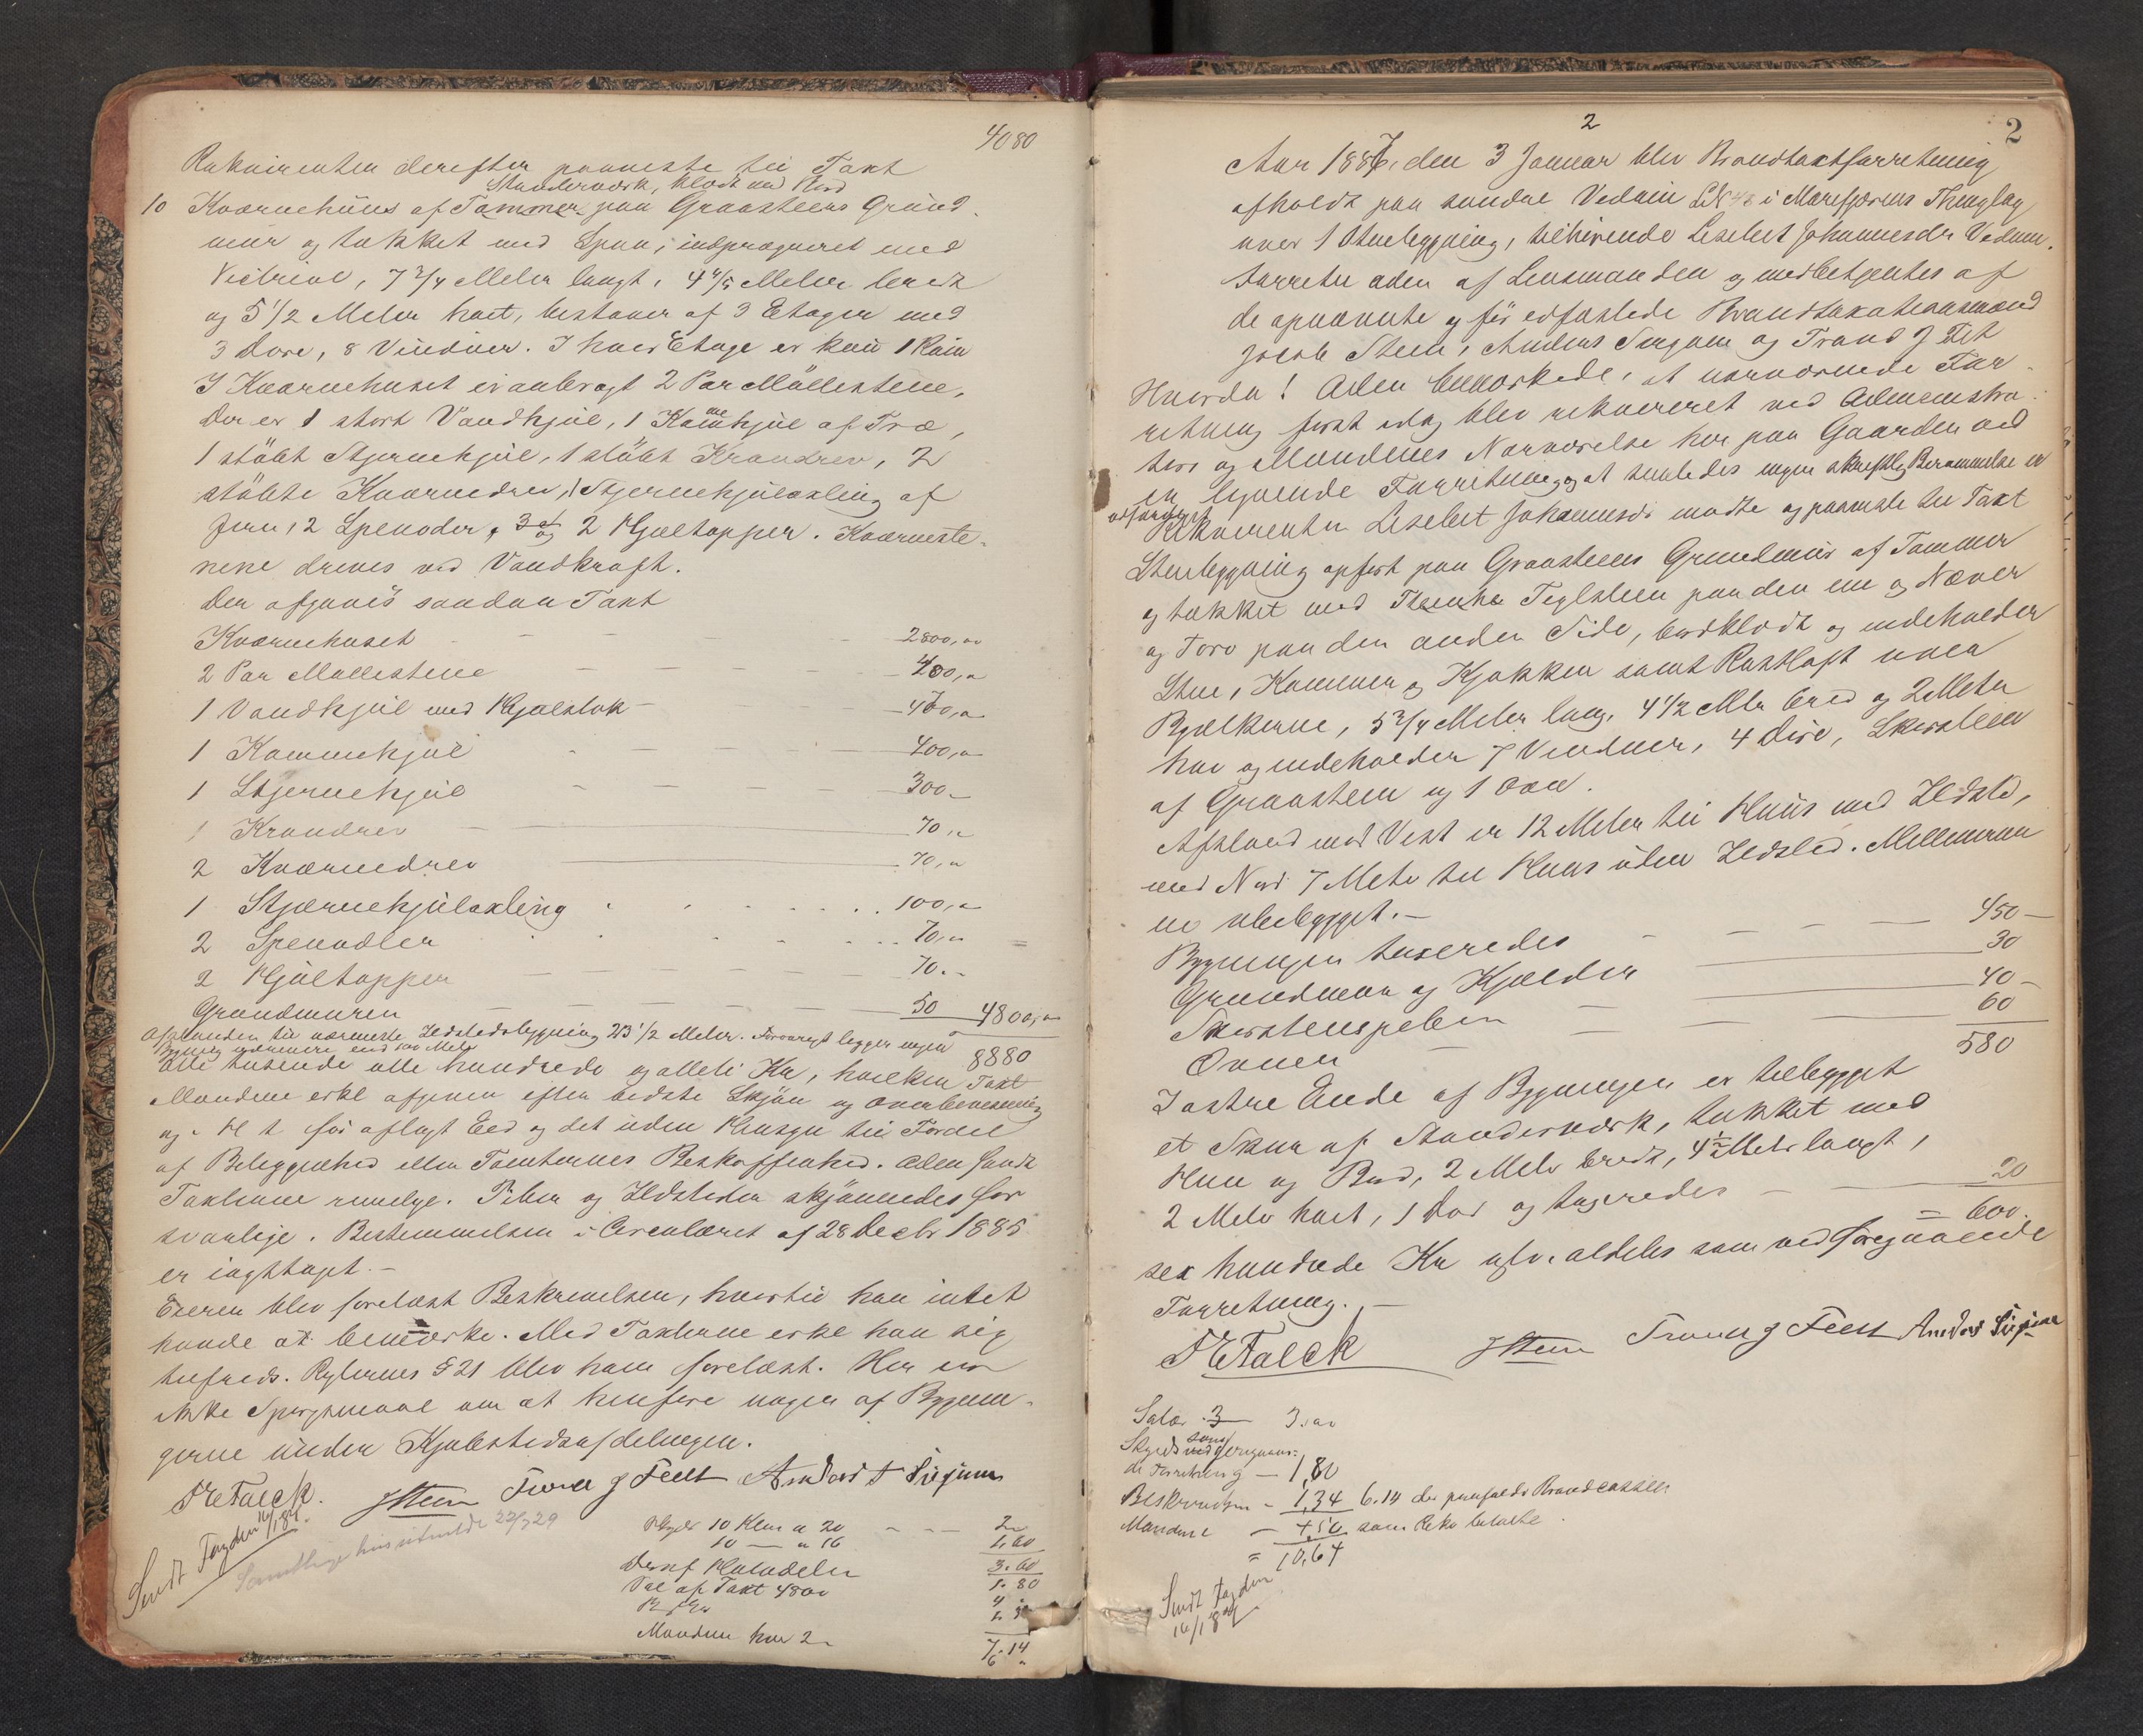 4080
Rekvirenten derefter paaviste til Taxt
Standerværk, klædt med Bord
10 Kværnehuus af Tømmer paa Graasteens Grund-
mur og tækket med Spaan, imprægneret med
Victriol, 7 3/4 Meter langt, 4 4/5 Meter bredt
og 5 1/2 Meter høit, bestaaer af 3 Etager med
3 Døre, 8 Vinduer. I hver Etage er kun 1 Rum
I Kværnehuset er anbragt 2 Par Møllestene,
Der er 1 stort Vandhjul, 1 Kamhjul af Træ,
1 støbt Stjernehjul, 1 støbt Krondrev, 2
støbte Kværndrev, 1 Stjernehjulaxling af
Jern, 2 Spendler, og 2 Hjultapper. Kværnste-
nene drives ved Vandkraft.
Der afgaves saadan Taxt
Kværnehuset - - - 2800,00
2 Par Møllestene - - - 400,00
1 Vandhjul med Hjulstok - - - 470,00
1 Kammehjul - - - 400,00
1 Stjernehjul - - - 300 -
1 Krondrev 70,00
2 Kværndrev 70,00
1 Stjernehjulaxling 100,00
2 Spendler 70,00
2 Hjultapper 70 -
Grundmuren - - - 50 4800,00
Afstanden til nærmeste Ildstedsbygning 23 1/2 Meter. Forøvrigt ligger ingen
Bygning nærmere end 100 Meter
8880
Otte tusende otte hundrede og otteti Kr, hvilken Taxt
Mændene erkl afgiven efter bedste Skjøn og Overbeviisning
og i H t før aflagt Eed og det uden Hensyn til Fordel
af Beliggenhed eller Tomternes Beskaffenhed. Adm fandt
Taxterne rimelige. Piber og Ildsteder skjønnedes for-
svarlige. Bestemmelsen i Circulæret af 28 Decbr 1885
er iagttaget. -
Eieren blev forelæst Beskrivelsen, hvortil han intet
havde at bemærke. Med Taxterne erkl han sig
tilfreds. Rglernes § 21 blev ham forelæst. Her var
ikke Spørgsmaal om at henføre nogen af Bygnin-
gerne under Kjøbstedsafdelingen.
Falck. JStein Trond J Feet Anders Sirjum
Sendt Fogden 16/1 87.
22/7 29
10 Klm a 20 - - - 2 -
10 - a 16 1,60
3.60
Deraf Halvdelen 1.80
af Taxt 4800 4
Mændene hver 2 -
7.14
6 "
2
2
Aar 1887, den 3 Januar blev Brandtaxtforretning
afholdt paa søndre Vedum LN i Morefjærens Thinglag
over 1 Stuebygning, tilhørende Lisebet Johannesdr Vedum.
Forretn adm af Lensmanden og medbetjentes af
de opnævnte og før edfæstede Brandtaxationsmænd
Jacob Stein, Anders Sirjum og Trond J Feet
Hvorda! Adm bemærkede, at nærværende For-
retning først idag blev rekvireret ved Administra-
tors og Mændenes Nærværelse her paa Gaarden ved
en lignende Forretning, og at saaledes ingen skriftlig Berammelse er
udfærdiget
Rekvirenten Lisebet Johannesdr mødte og paaviste til Taxt
Stuebygning opført paa Graasteens Grundmur af Tømmer
og tækket med Teglsteen paa den ene og Næver
og Torv paa den anden Side, bordklædt og indeholder
Stue, Kammer og Kjøkken samt Rustloft under
Bjælkerne, 5 3/4 Meter lang, 4 1/2 Mtr bred og 2 Meter
høi og indeholder 7 Vinduer, 4 Døre, Skorsteen
af Graasteen og 1 Ovn.
Afstand mod Vest er 12 Meter til Huus med Ildsted,
mod Nord 7 Meter til Huus uden Ildsted. Mellemrum
er ubebygget. -
Bygningen taxeredes - - - 450 -
Grundmur og Kjælder 30
Skorsteenspiben 40 -
Ovnen 60
580
I østre Ende af Bygningen er tilbygget
et Skur af Standerværk, tækket med
Hun og Bord, 2 Meter bredt, 4 1/2 Meter langt,
2 Meter høit, 1 Dør og taxeredes - 20
= 600.
sex hundrede Kr osv. aldeles som ved foregaaende
Forretning. -
Falck JStein Trond J Feet Anders Sirjum
Salær 3 3.00
Skyds som foregaaen-
de Forretning - 1,80
Beskrivelsen - 1,34 6.14 der paafaldt Brandcassen
Mændene - 4,50 som Rekv betalte.
= 10,64
Sendt Fogden
16/1 87